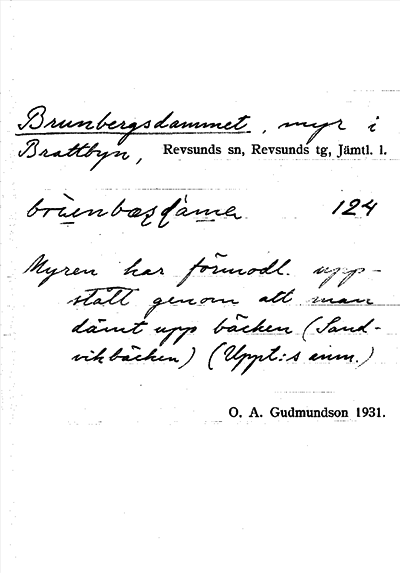 Brunbergsdammet, myr i
Brattbyn, Revsunds sn, Revsunds tg, Jämtl. l.
124
Myren har förmodl. upp-
stått genom att man
dämt upp bäcken (Sand-
vikbäcken) (Uppt:s anm.)
O. A. Gudmundson 1931.